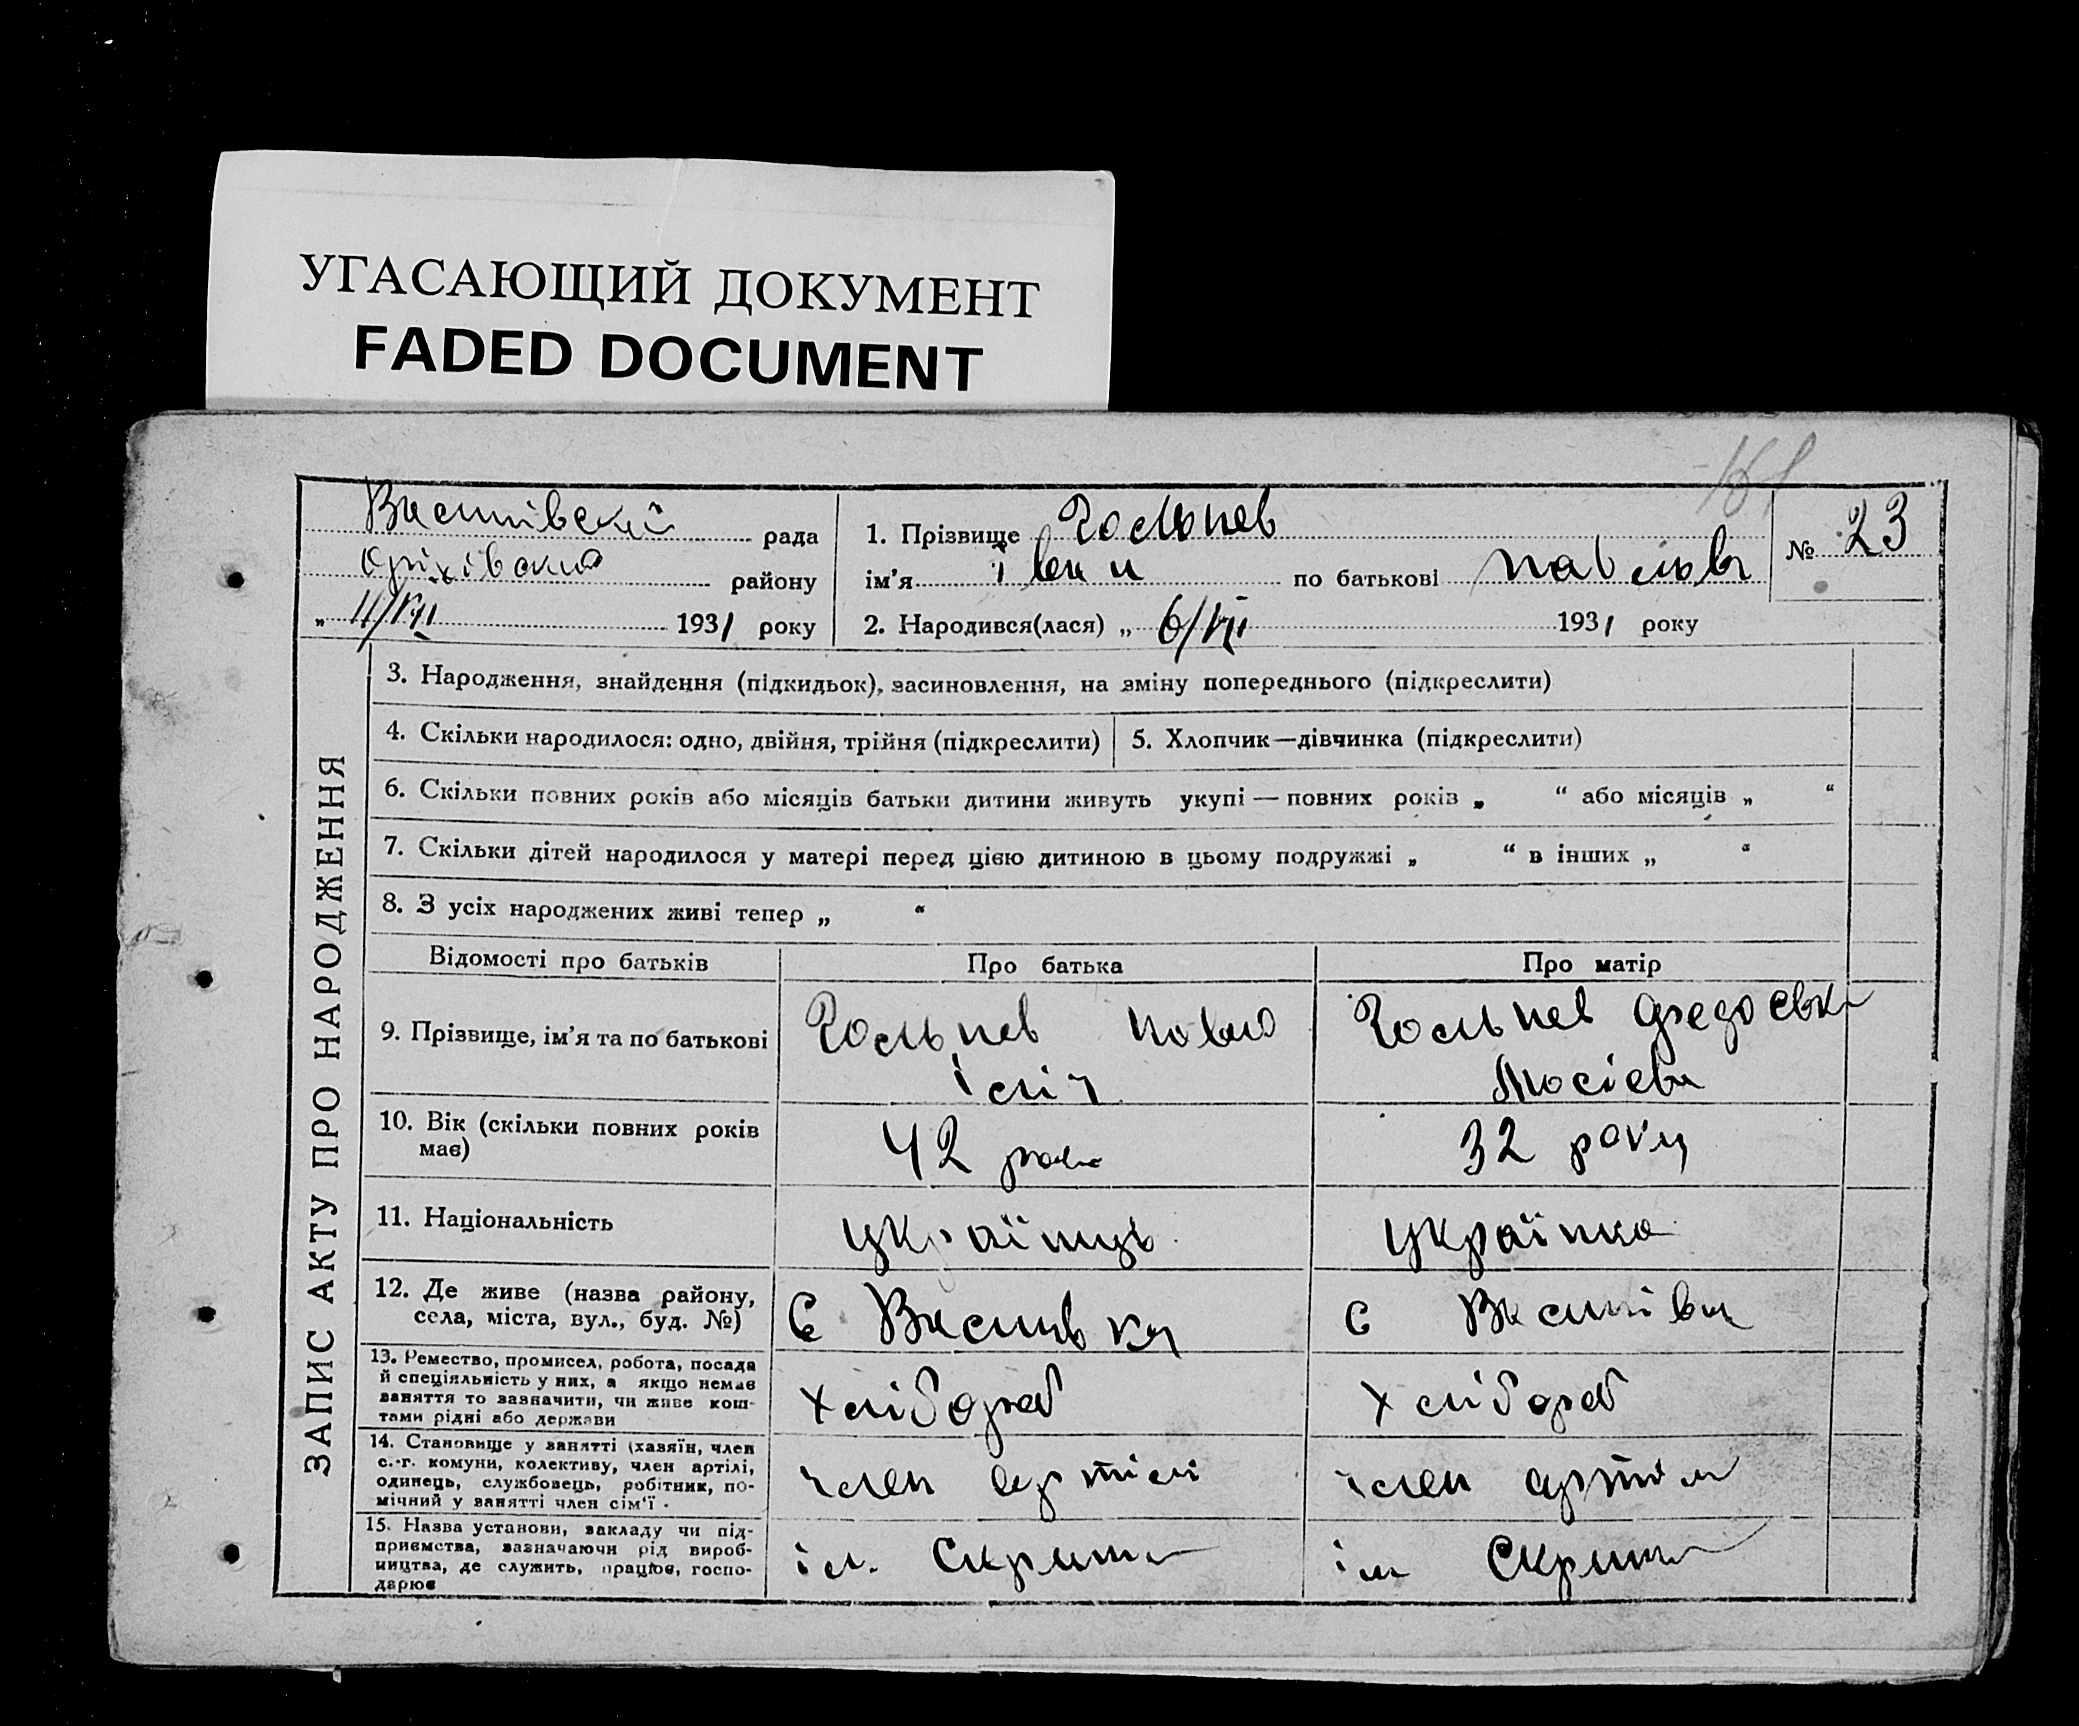 УГАСАЮЩИЙ ДОКУМЕНТ
FADED DOCUMENT
161
рада
району
„ 11/VII 1931 року
1. Прізвище
ім’я Іван по батькові
№ 23
2. Народився(лася) „ 6/VII 1931 року
ЗАПИС АКТУ ПРО НАРОДЖЕННЯ
3. Народження, знайдення (підкидьок), засиновлення, на зміну попереднього (підкреслити)
4. Скільки народилося: одно, двійня, трійня (підкреслити)
5. Хлопчик—дівчинка (підкреслити)
6. Скільки повних років або місяців батьки дитини живуть укупі — повних років „ “ або місяців „ “
7. Скільки дітей народилося у матері перед цією дитиною в цьому подружжі „ “ в інших „ “
8. З усіх народжених живі тепер „ “
Відомості про батьків
Про батька
Про матір
9. Прізвище, ім’я та по батькові
10. Вік (скільки повних років
має)
42
32 роки
11. Національність
українець
українка
12. Де живе (назва району,
села, міста, вул., буд. №)
с
с
13. Ремество, промисел, робота, посада
й спеціяльність у них, а якщо немає
заняття то зазначити, чи живе кош-
тами рідні або держави
хлібороб
хлібороб
14. Становище у занятті (хазяїн, член
с.-г. комуни, колективу, член артілі,
одинець, службовець, робітник, по-
мічний у занятті член сім’ї .
член артілі
член артілі
15. Назва установи, закладу чи під-
приємства, зазначаючи рід вироб-
ництва, де служить, працює, госпо-
дарює
ім.
ім